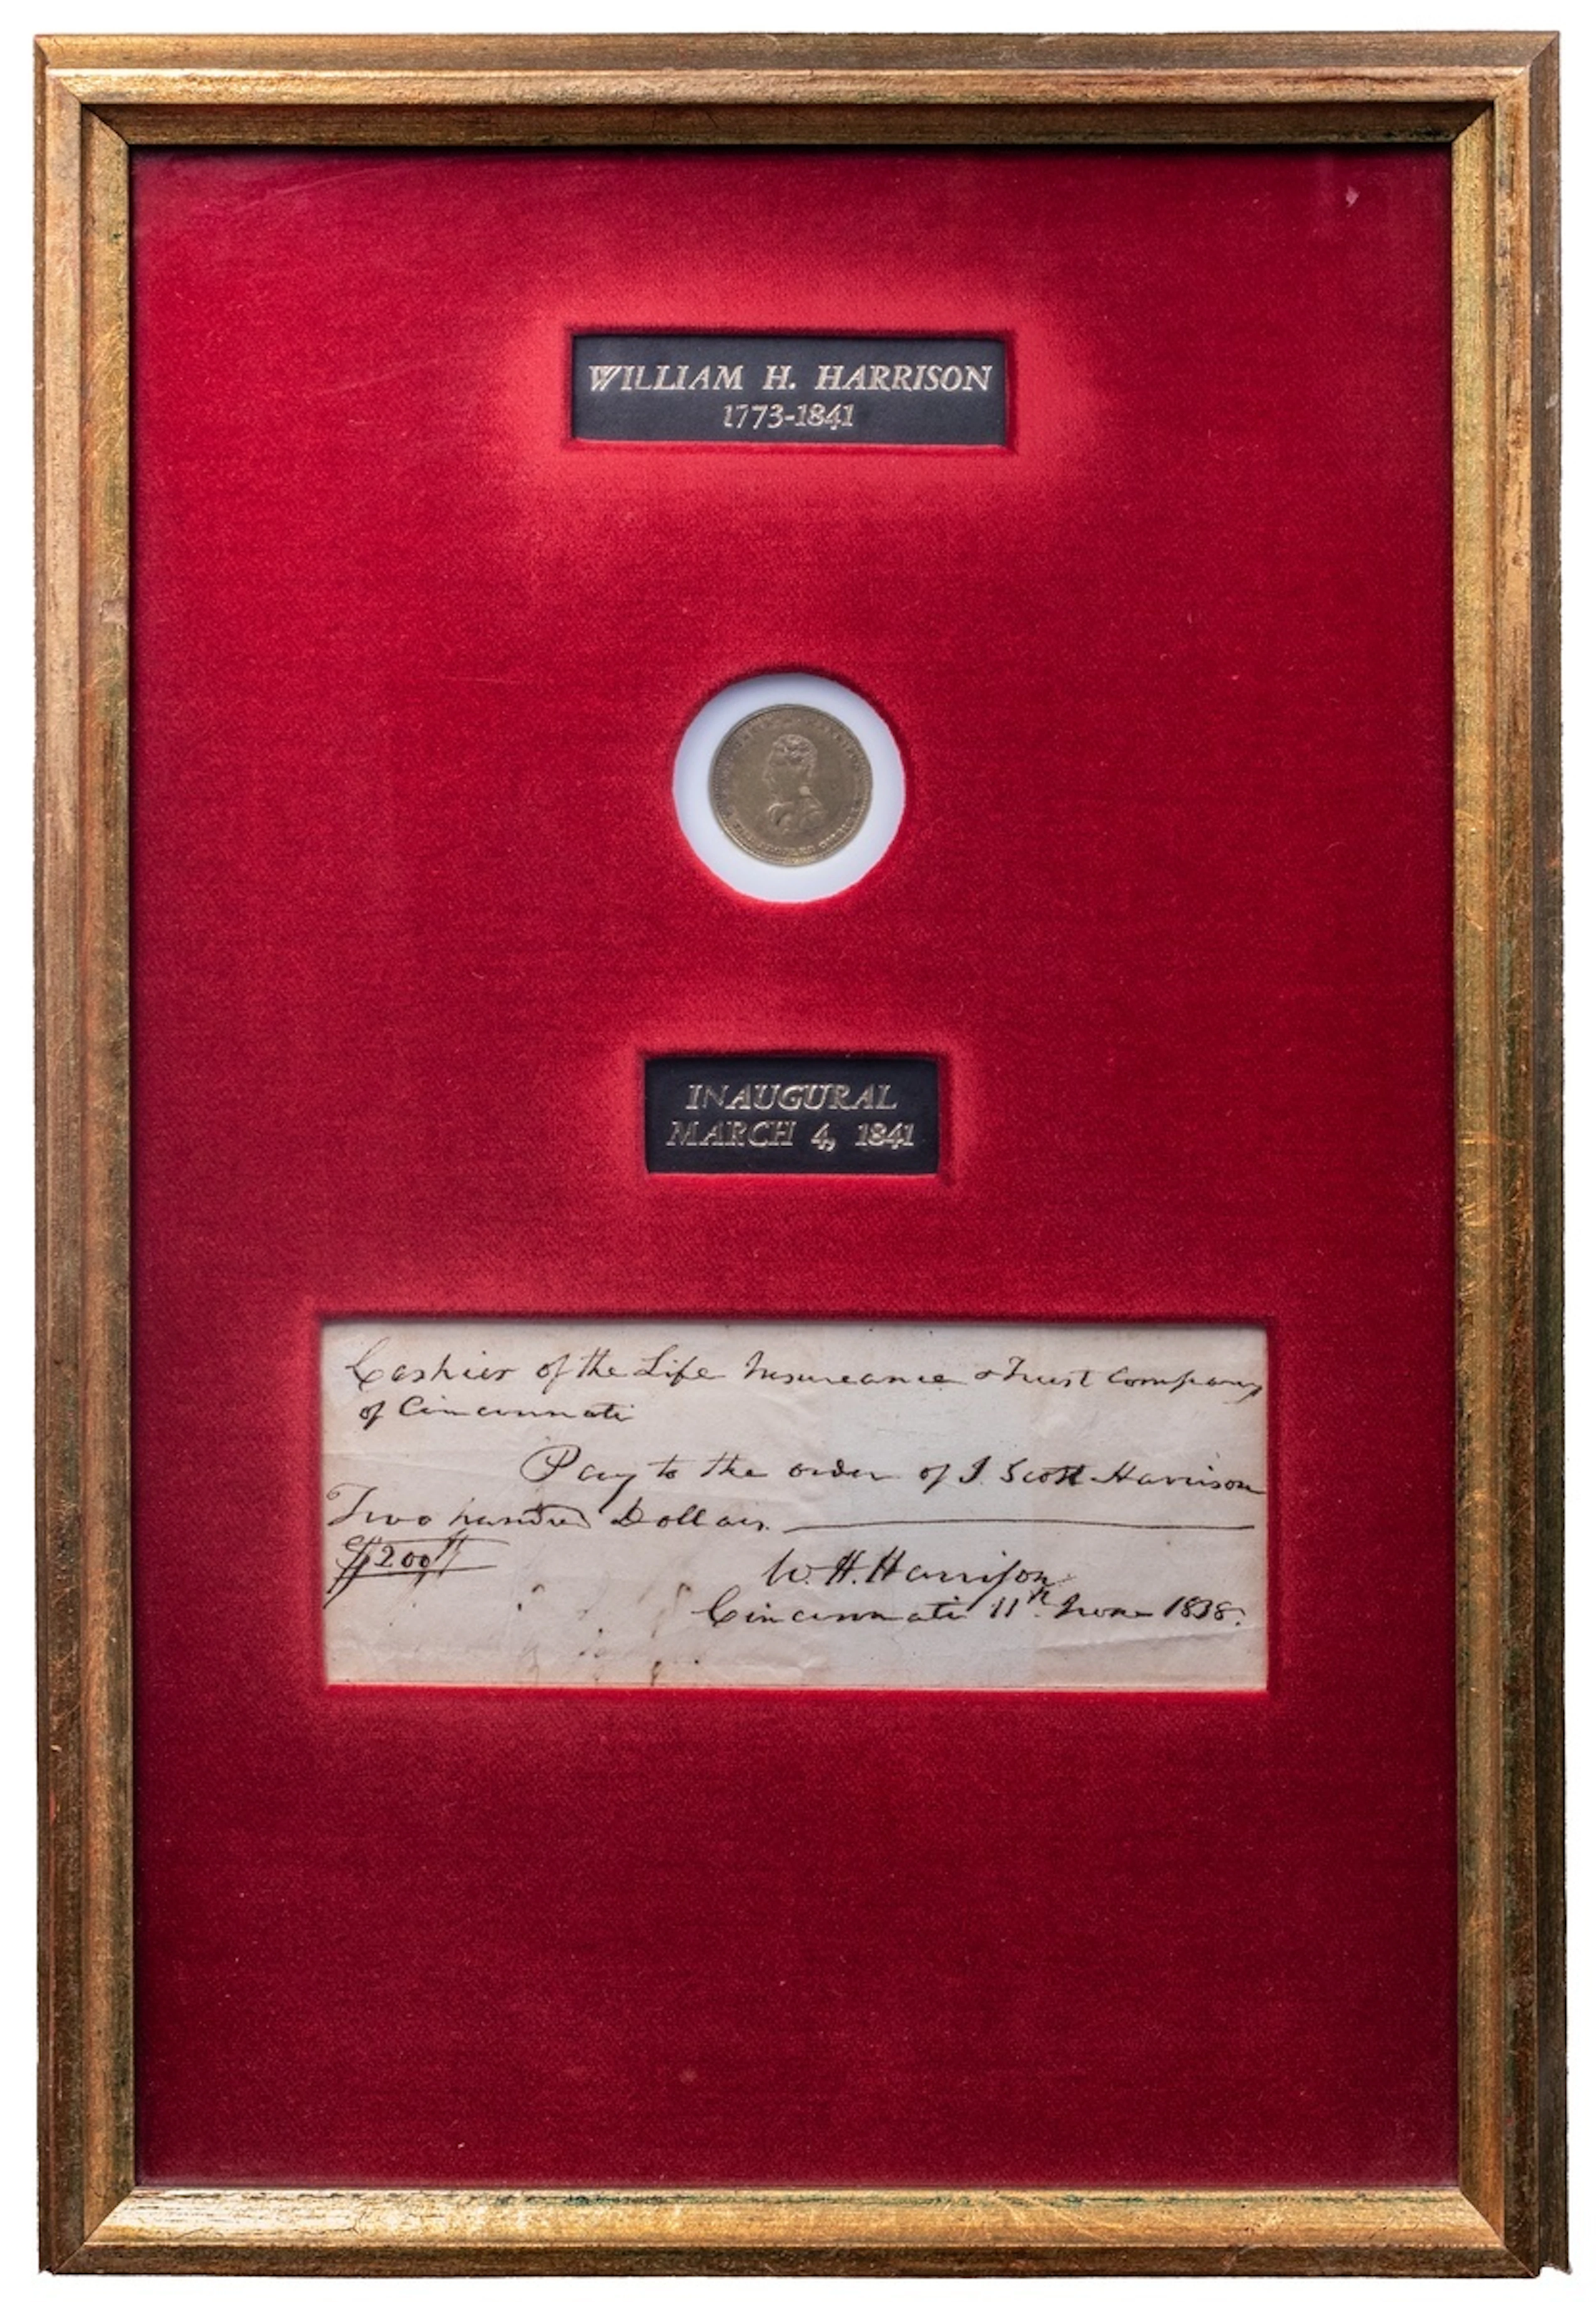 WILLIAM H. HARRISON
1773-1841
INAUGURAL
MARCH 4, 1841
Cashier of the Life Insureance & Trust Company
of Cincinnati
Pay to the order of J. Scott Harrison
Two hundred Dollars.
$200
W. H. Harrison
Cincinnati 11th June 1838.